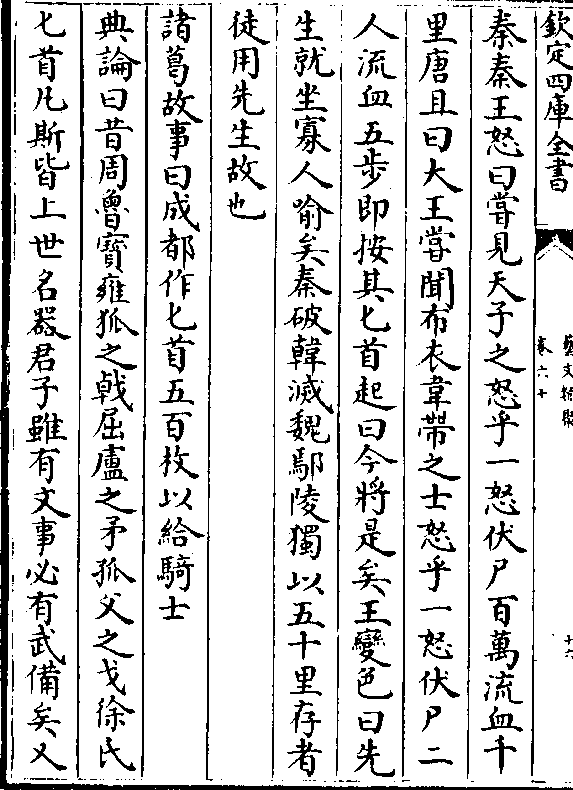 欽定四庫全書
藝文類聚
卷六十
十六
秦秦王怒曰嘗見天子之怒乎一怒伏尸百萬流血千
里唐且曰大王嘗聞布衣韋帶之士怒乎一怒伏尸二
人流血五步即按其匕首起曰今將是矣王變色曰先
生就坐寡人喻矣秦破韓滅魏鄢陵獨以五十里存者
徒用先生故也
諸葛故事曰成都作匕首五百枚以給騎士
典論曰昔周魯寶雍狐之戟屈廬之矛孤父之戈徐氏
匕首凡斯皆上世名器君子雖有文事必有武備矣又